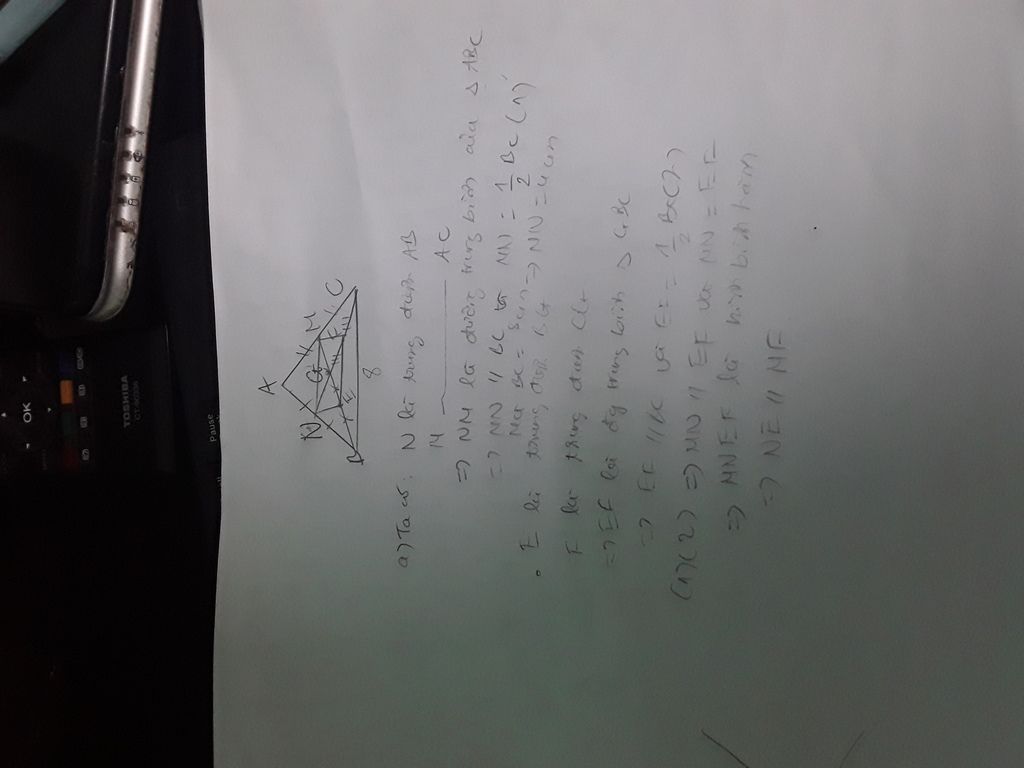 A
N
M
G
E
F
B
C
8
a) Ta có: N là trung điểm AB
M ——— AC
=> NM là đường trung bình của Δ ABC
=> MN // BC và MN = 1/2 BC (1)
Mà BC = 8cm => MN = 4cm
• E là trung điểm BG
F là trung điểm CG
=> EF là đg trung bình Δ GBC
=> EF // BC và EF = 1/2 BC (2)
(1)(2) => MN // EF và MN = EF
=> MNEF là hình bình hành
=> NE // MF
OK
TOSHIBA
Pause